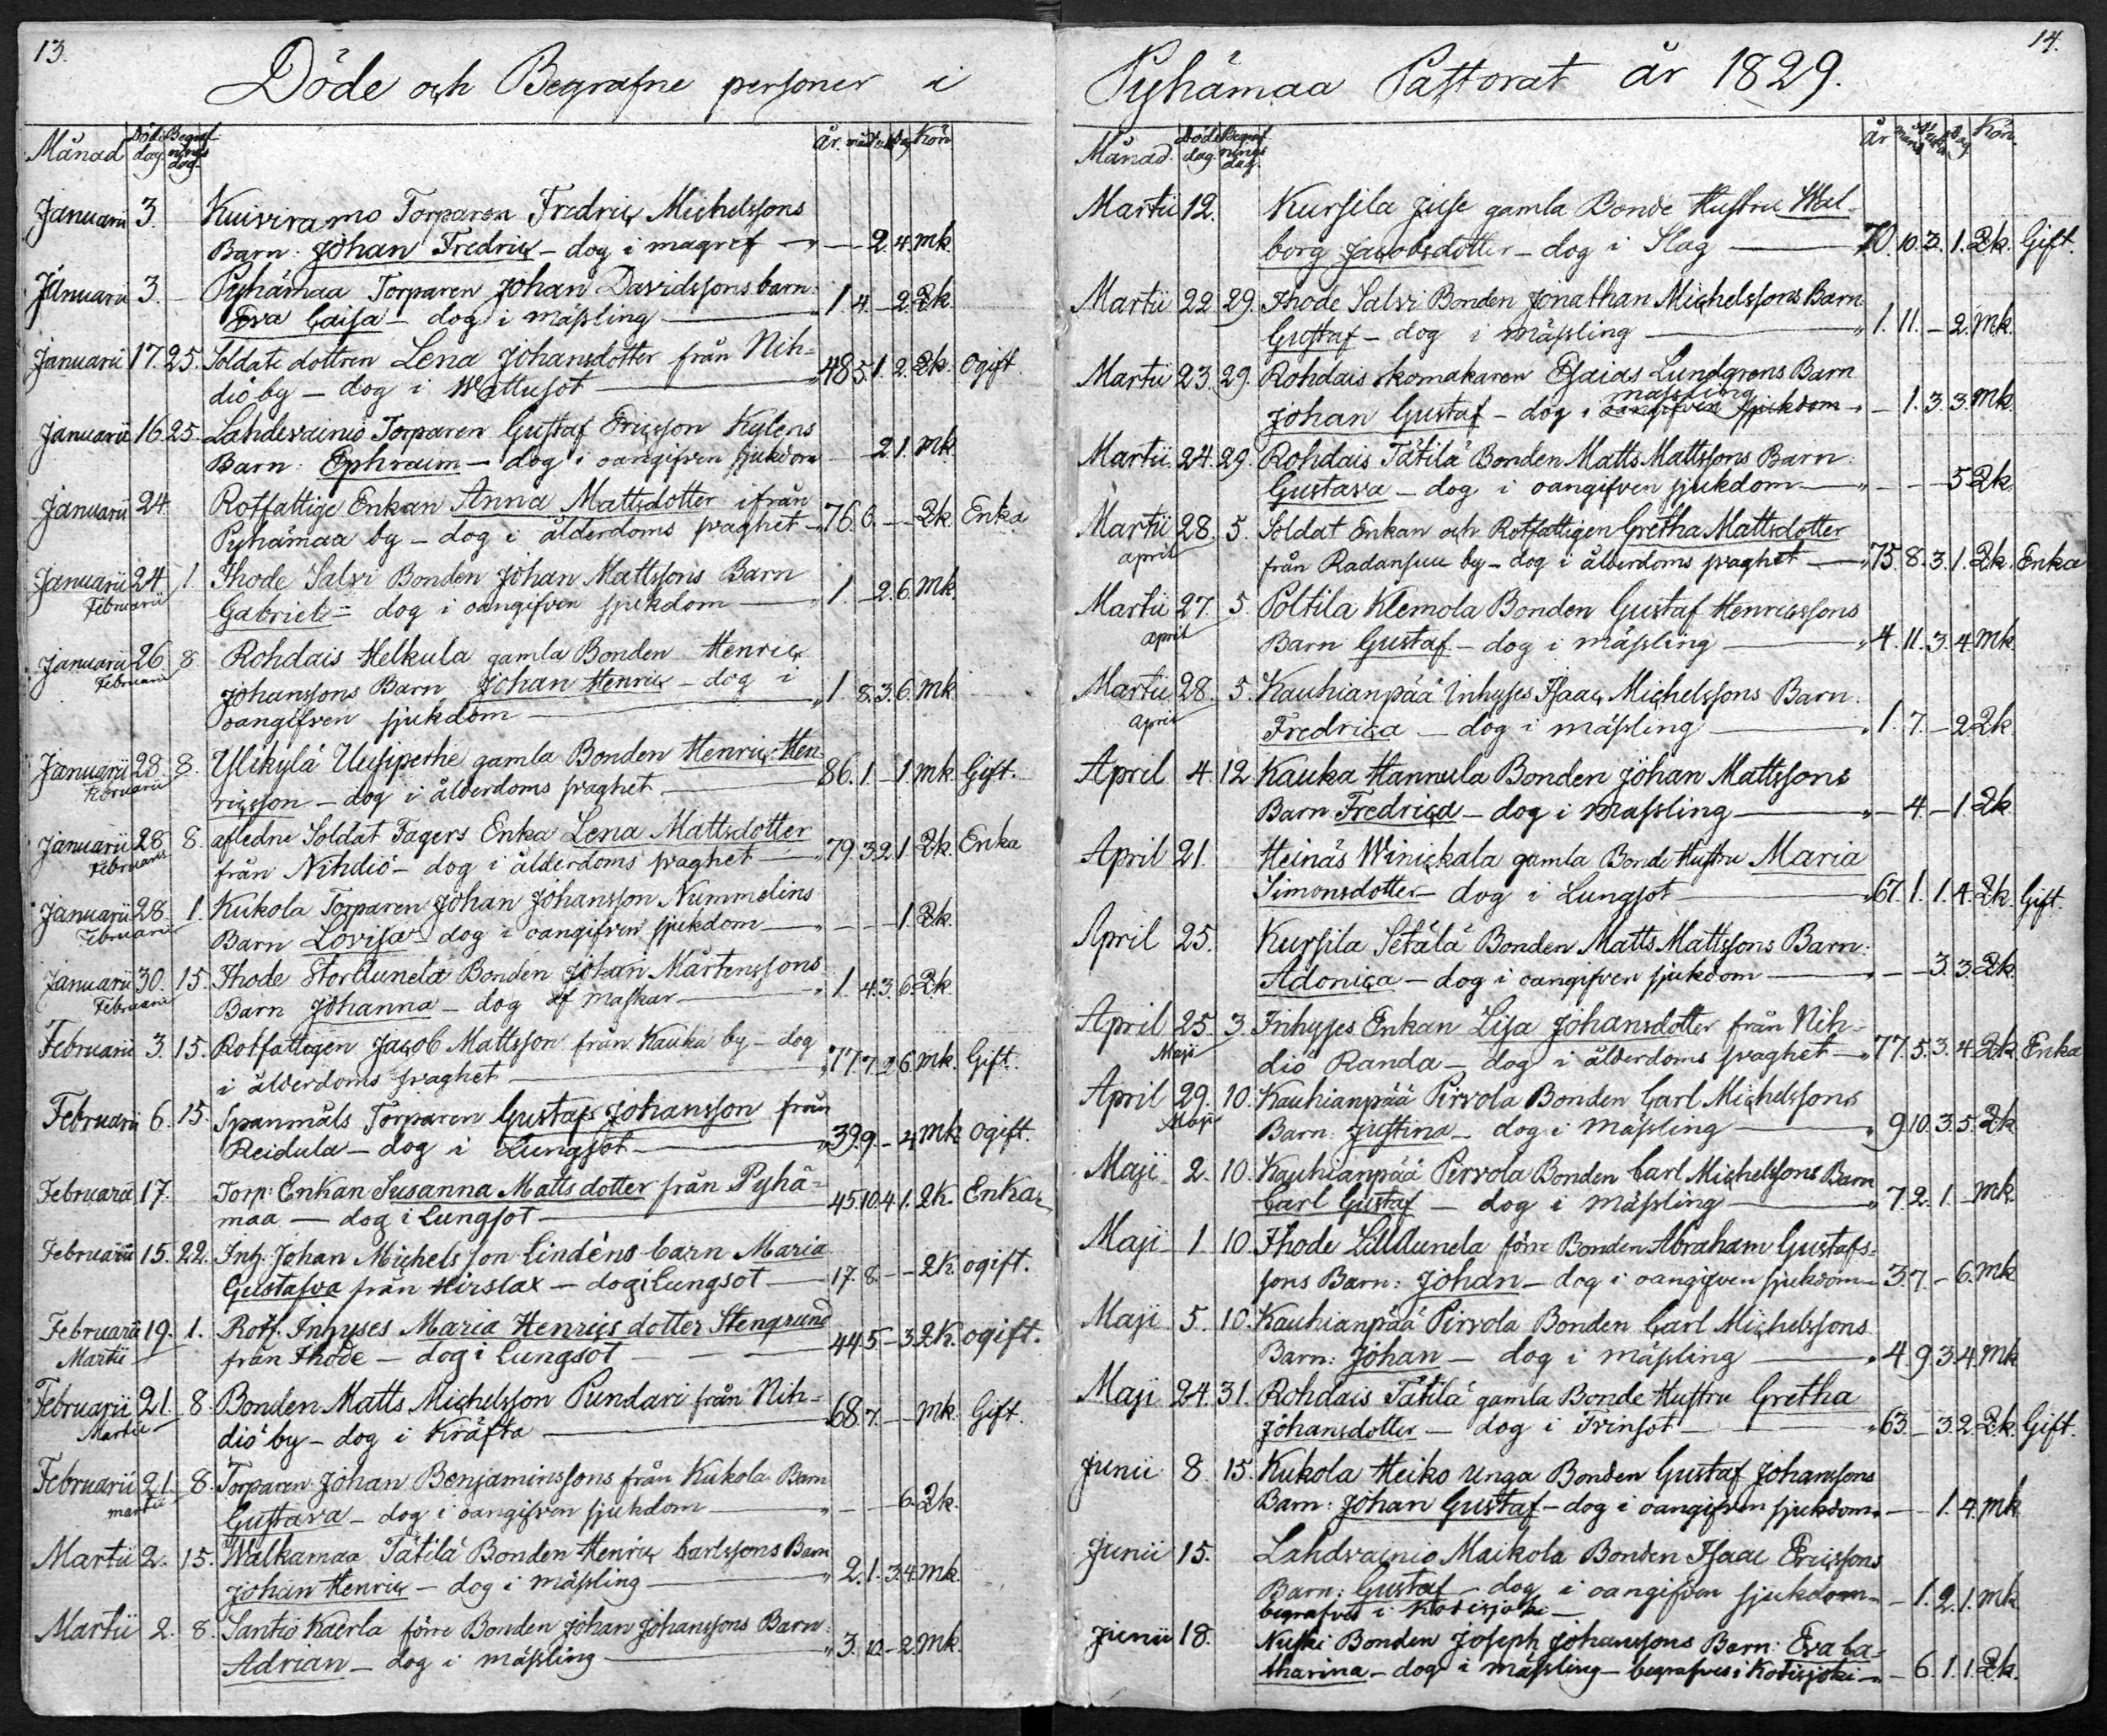 13.
Döde och Begrafne personer i
Månad Döds dag. Begraf nings dag. År. Kön
Januarii 3. Kuiviramo Torparen Fredric Michelssons
Barn: Johan Fredric - dog i magref - - 2. 4. mk.
Januarii 3. - Pyhämaa Torparen Johan Davidssons barn:
Eva Caisa - dog i mässling 1. 4. - 2. Qk.
Januarii 17. 25. Soldats dottren Lena Johansdotter från Nih-
diö by - dog i Wattusot 48 5. 1. 2. Qk. Ogift
Januarii 16. 25. Lahdevainio Torparen Gustaf Ericsson Kylens
Barn: Ephraim - dog i oangifven sjukdom - 2. 1. mk.
Januarii 24 Rotfattige Enkan Anna Mattsdotter ifrån
Pyhämaa by - dog i ålderdoms svaghet - 76. 6. - - Qk. Enka
Januarii 24. 1. Ihode Salvi Bonden Johan Mattssons Barn
Februarii Gabriel = dog i oangifven sjukdom 1. - 2. 6. mk.
Januarii 26. 8 Rohdais Helkula gamla Bonden Henric
Februarii Johanssons Barn Johan Henric - dog i
oangifven sjukdom 1. 8. 3. 6. mk
Januarii 28. 8. Ylikylä Uusipethe gamla Bonden Henric Hen
Februarii ricsson - dog i ålderdoms svaghet 86. 1. - 1 mk Gift.
Januarii 28 8. afledne Soldat Fagers Enka Lena Mattsdotter
Februarii från Nihdiö - dog i ålderdoms svaghet 79. 3 2 1 Qk. Enka
Januarii 28. 1. Kukola Torparen Johan Johansson Nummelins
Februarii Barn Lovisa - dog i oangifven sjukdom - - - 1. Qk.
Januarii 30. 15. Ihode Stor Aunela Bonden Johan Mårtenssons
Februarii Barn Johanna - dog af maskar 1. 4. 3. 6. Qk
Februarii 3. 15. Rotfattigen Jacob Mattsson från Kauka by - dog
i ålderdoms svaghet 77. 7. 2 6. mk. Gift.
Februarii 6. 15. Spanmåls Torparen Gustaf Johansson från
Reidula - dog i Lungsot 39. 9. - 4 mk. Ogift.
Februarii 17. Torp: Enkan Susanna Mattsdotter från Pyhä-
maa - dog i Lungsot 45. 10. 4. 1. QK. Enka
Februarii 15. 22. Inh: Johan Michelsson Lindéns barn Maria
Gustafva från Hirslax - dog i Lungsot 17. 8. - - QK. ogift.
Februarii 19. 1. Rotf. Inhyses Maria Henrics dotter Stengrund
Martii från Ihode - dog i Lungsot 44. 5. - 3. QK. ogift.
Februarii 21. 8. Bonden Matts Michelsson Pundari från Nih-
Martii diö by - dog i Kräfta 68. 7. - - mk. Gift.
Februarii 21. 8. Torparen Johan Benjaminssons från Kukola Barn
martii Gustava - dog i oangifven sjukdom - - - 6. Qk.
Martii 2. 15. Walkamaa Tätilä Bonden Henric Carlssons Barn
Johan Henric - dog i mässling 2. 1. 3. 4. mk.
Martii 2. 8. Santiö Kaerla förre Bonden Johan Johanssons Barn:
Adrian - dog i mässling 3. 10. - 2. mk.
14.
Pyhämaa Pastorat år 1829.
Månad. Döds dag. Begraf nings dag. År månad dag Kön.
Martii 12. Kursila Juse gamla Bonde Hustru Wal-
borg Jacobsdotter - dog i Slag 70. 10. 3. 1. Qk. Gift.
Martii 22 29. Ihode Salvi Bonden Jonathan Michelssons Barn
Gustaf - dog i mässling 1. 11. - 2. mk.
Martii 23. 29. Rohdais skomakaren Esaias Lundgrens Barn
mässling
Johan Gustaf - dog i oangifven sjukdom - 1. 3. 3. mk.
Martii. 24. 29. Rohdais Tätilä Bonden Matts Mattssons Barn:
Gustava - dog i oangifven sjukdom - - - 5 Qk.
Martii 28. 5. Soldat Enkan och Rotfattigen Gretha Mattsdotter
april från Radansuu by - dog i ålderdoms svaghet 75. 8. 3. 1. Qk. Enka
Martii 27. 5. Poltila Klemola Bonden Gustaf Henricssons
april Barn Gustaf - dog i mässling 4. 11. 3. 4. mk.
Martii 28. 5. Kauhianpää Inhyses Isaac Michelssons Barn:
april Fredrica - dog i mässling 1. 7. - 2 Qk
April 4. 12 Kauka Hannula Bonden Johan Mattssons
Barn: Fredrica - dog i mässling - 4. - 1 Qk
April 21. Heinäs Winickala gamla Bonde Hustru Maria
Simonsdotter - dog i Lungsot 67. 1. 1. 4. Qk. Gift.
April 25. Kursila Setälä Bonden Matts Mattssons Barn:
Adonica - dog i oangifven sjukdom - - 3. 3. Qk.
April 25. 3. Inhyses Enkan Lisa Johansdotter från Nih-
Maji diö Randa - dog i ålderdoms svaghet 77. 5. 3. 4. Qk. Enka
April 29. 10. Kauhianpää Pirvola Bonden Carl Michelssons
Maji Barn: Justina - dog i mässling 9 10. 3. 5. Qk
Maji 2. 10. Kauhianpää Pirvola Bonden Carl Michelssons Barn
Carl Gustaf - dog i mässling 7. 2. 1. - mk.
Maji 1. 10. Ihode Lill Aunela förre Bonden Abraham Gustafs-
sons Barn: Johan - dog i oangifven sjukdom 3. 7. - 6. mk
Maji 5. 10. Kauhianpää Pirvola Bonden Carl Michelssons
Barn: Johan - dog i mässling 4. 9. 3. 4. mk
Maji 24. 31. Rohdais Tätilä gamla Bonde Hustru Gretha
Johansdotter - dog i Trinsot 63. - 3. 2. Qk. Gift.
Junii 8. 15. Kukola Heiko unga Bonden Gustaf Johanssons
Barn: Johan Gustaf - dog i oangifven sjukdom - - 1. 4. mk
Junii 15. Lahdvainio Maikola Bonden Isaac Ericssons
Barn: Gustaf - dog i oangifven sjukdom - 1. 2. 1. mk
begrafves i Kodisjoki -
Junii 18. Nuski Bonden Joseph Johanssons Barn: Eva Ca-
tharina - dog i mässling - begrafves i Kodisjoki - 6. 1. 1. Qk.